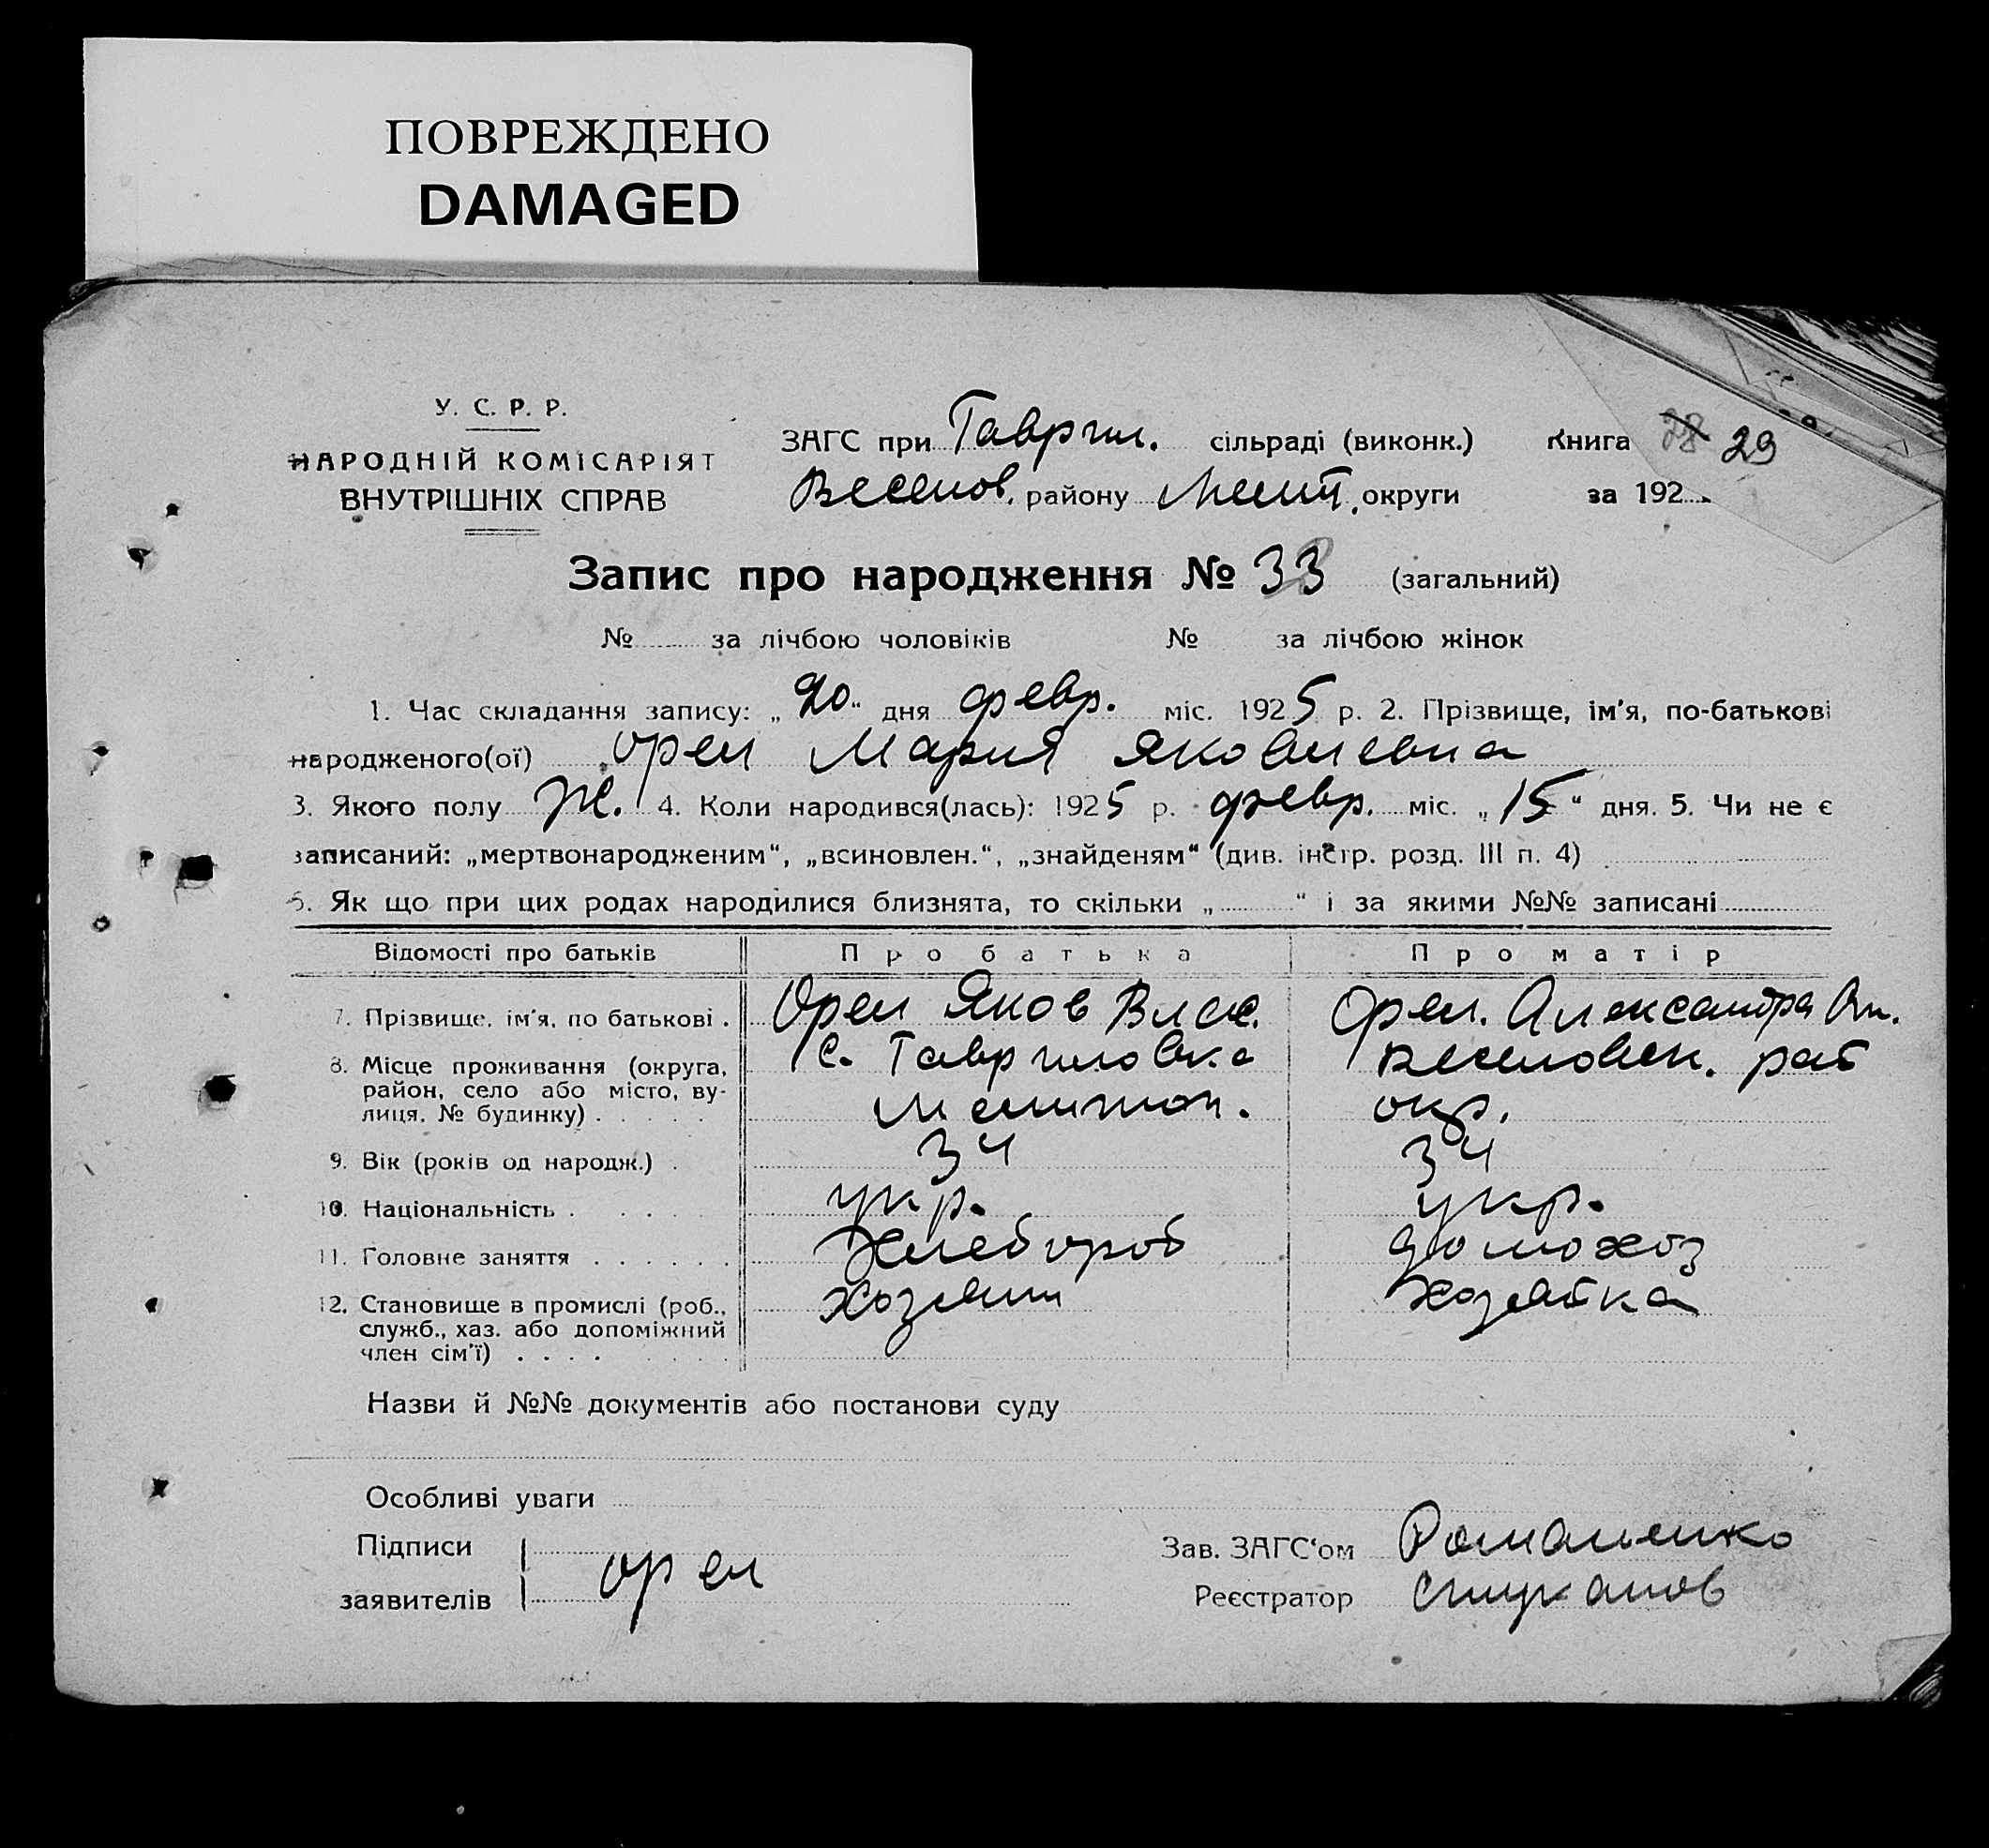 ПОВРЕЖДЕНО
DAMAGED
У. С. Р. Р.
НАРОДНІЙ КОМІСАРІЯТ
ВНУТРІШНІХ СПРАВ
ЗАГС при Гаврил. сільраді (виконк.) Книга 28 29
Веселов. району Мелит. округи за 192
Запис про народження № 33 (загальний)
№ за лічбою чоловіків № за лічбою жінок
1. Час складання запису: „20“ дня февр. міс. 1925 р. 2. Прізвище, ім'я, по-батькові
народженого(ої) Орел Мария Яковлевна
3. Якого полу Ж. 4. Коли народився(лась): 1925 р. февр. міс. „15“ дня. 5. Чи не є
записаний: „мертвонародженим“, „всиновлен.“, „знайденям“ (див. інстр. розд. III п. 4)
6. Як що при цих родах народилися близнята, то скільки „ “ і за якими №№ записані
Відомості про батьків Про батька Про матір
7. Прізвище, ім'я, по батькові . Орел Яков Влас. Орел. Александра
8. Місце проживання (округа, с. Гавриловка Веселовск. рай
район, село або місто, ву-
лиця, № будинку) . . . . . Мелитоп. окр.
9. Вік (років од народж.) . 34 34
10. Національність . . . . . укр. укр.
11. Головне заняття . . . . . . Хлебороб домохоз
12. Становище в промислі (роб., хозяин хозяйка
служб., хаз. або допоміжний
член сім'ї) . . . .
Назви й №№ документів або постанови суду
Особливі уваги
Підписи
заявителів орел
Зав. ЗАГС'ом Романенко
Реєстратор